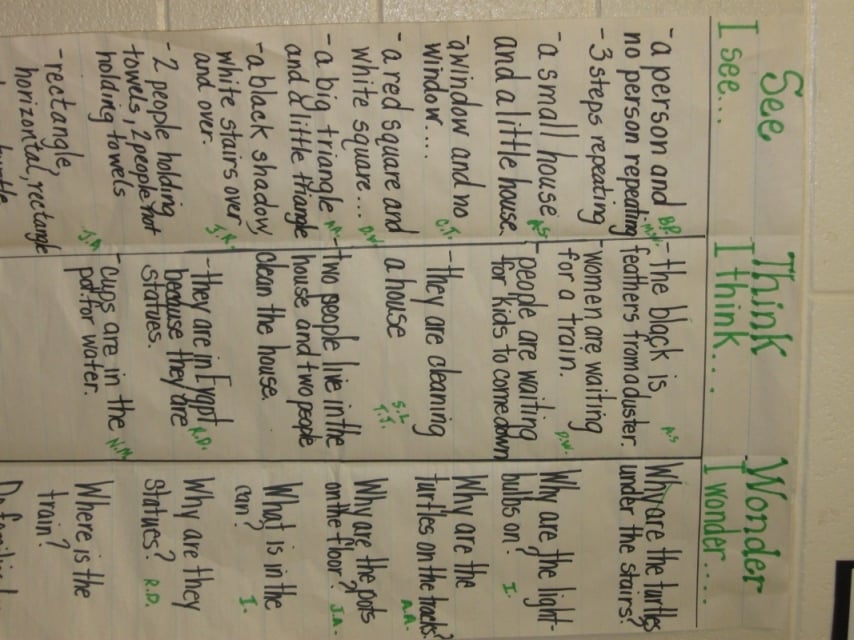 See
I see...
-a person and
no person repeating
-3 steps repeating
-a small house
and a little house.
-a window and no
window....
-a red square and
white square...
-a big triangle
and a little triangle
-a black shadow,
white stairs over
and over.
-2 people holding
towels, 2 people not
holding towels
-rectangle,
horizontal, rectangle
Think
I think....
-the black is
feathers from a duster.
A.S
-women are waiting
for a train.
D.W.
-people are waiting
for kids to come down
-they are cleaning
a house
S.L
T.J.
-two people live in the
house and two people
clean the house.
-they are in Erypt
because they are
statues.
R.D.
-cups are in the
pot for water.
N.M.
Wonder
I wonder.....
Why are the turtles
under the stairs?
Why are the light-
bulbs on?
I.
Why are the
turtles on the tracks?
A.A.
Why are the pots
on the floor?
J.A.
What is in the
can?
I.
Why are they
statues?
R.D.
Where is the
train?